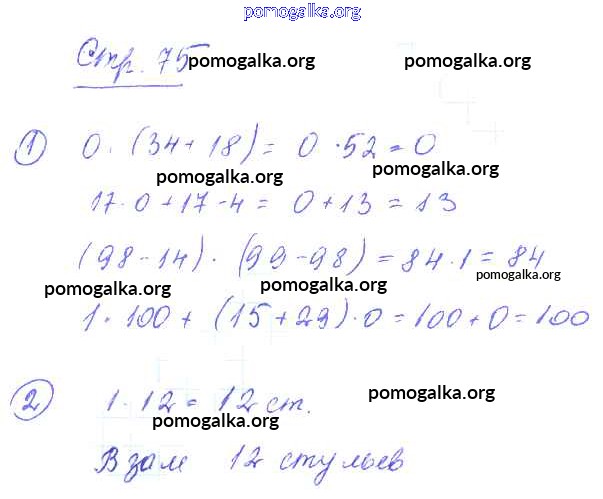 pomogalka.org
Стр. 75 pomogalka.org pomogalka.org
1 0 · (34 + 18) = 0 · 52 = 0
pomogalka.org pomogalka.org
17 · 0 + 17 - 4 = 0 + 13 = 13
(98 - 14) · (99 - 98) = 84 · 1 = 84
pomogalka.org pomogalka.org pomogalka.org
1 · 100 + (15 + 29) · 0 = 100 + 0 = 100
2 1 · 12 = 12 ст. pomogalka.org
pomogalka.org
В зале 12 стульев pomogalka.org